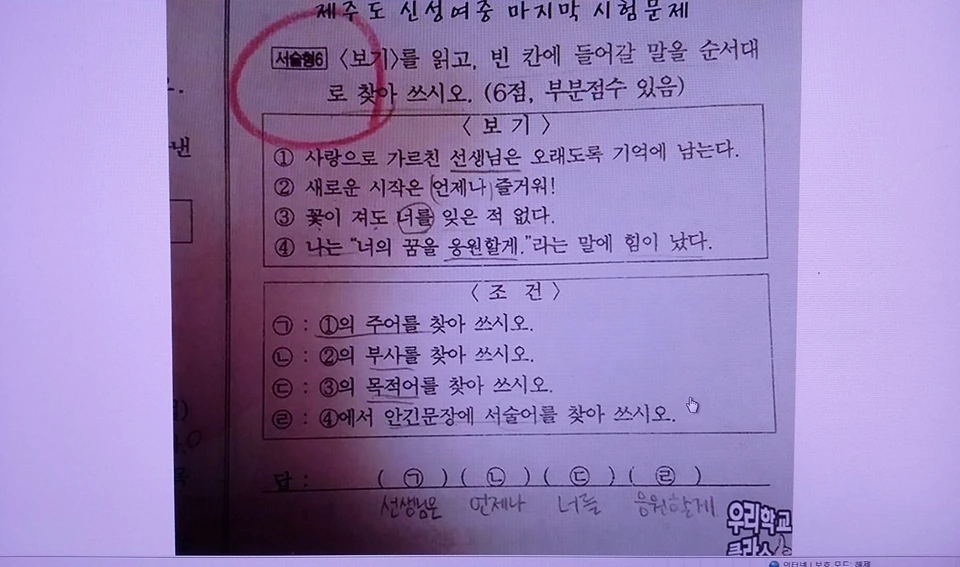 제주도 신성여중 마지막 시험문제
서술형6 〈보기〉를 읽고, 빈 칸에 들어갈 말을 순서대
로 찾아 쓰시오. (6점, 부분점수 있음)
〈 보 기 〉
① 사랑으로 가르친 선생님은 오래도록 기억에 남는다.
② 새로운 시작은 언제나 즐거워!
③ 꽃이 져도 너를 잊은 적 없다.
④ 나는 “너의 꿈을 응원할게.”라는 말에 힘이 났다.
〈 조 건 〉
㉠ : ①의 주어를 찾아 쓰시오.
㉡ : ②의 부사를 찾아 쓰시오.
㉢ : ③의 목적어를 찾아 쓰시오.
㉣ : ④에서 안긴문장에 서술어를 찾아 쓰시오.
답 : ( ㉠ ) ( ㉡ ) ( ㉢ ) ( ㉣ )
선생님은 언제나 너를 응원할게
낸
우리학교
클라스